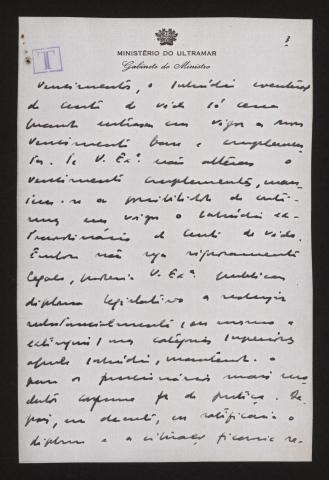 3
T
MINISTÉRIO DO ULTRAMAR
Gabinete do Ministro
vencimentos, o subsídio eventual
de custo de vida só cessa
quando entrarem em vigor os novos
vencimentos base e complementa-
res. Se V. Exª. não alterar o
vencimento complementar, man-
tem-se a possibilidade de conti-
nuar em vigor o subsídio ex-
traordinário de custo de vida.
Embora não seja rigorosamente
legal, poderia V. Exª. publicar
diploma legislativo a reduzir
substancialmente, ou mesmo a
extinguir, nas categorias superiores
aquele subsídio, mantendo-o
para os funcionários mais mo-
destos conforme for de justiça. De-
pois, em decreto, eu ratificaria o
diploma e a situação ficaria re-